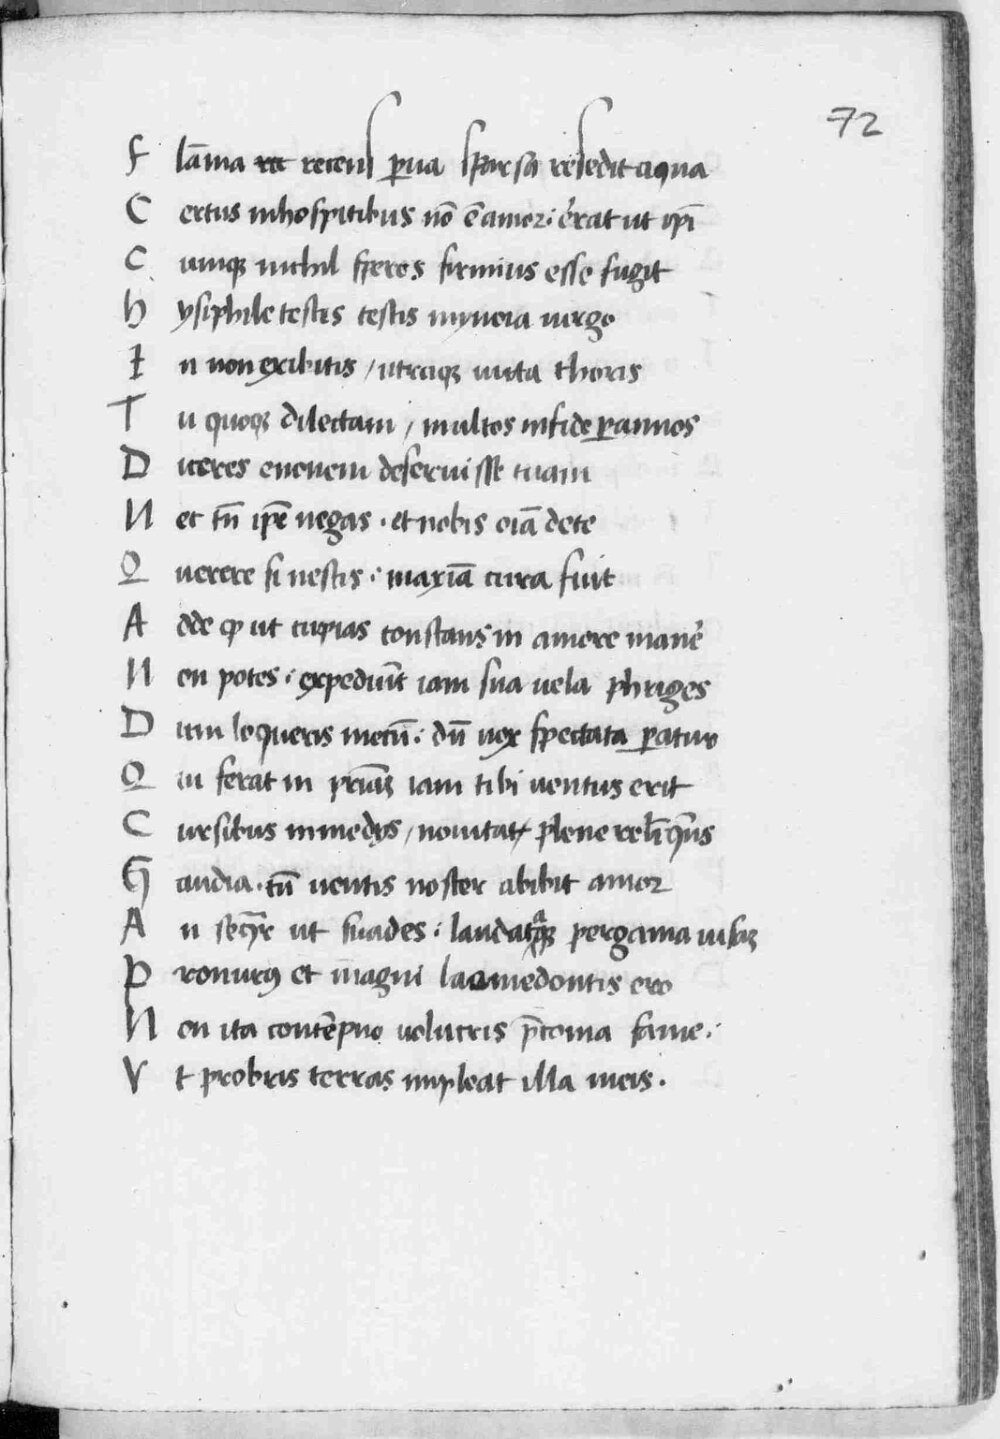 72
Flāma rec recens ꝑua sparsa resedit aqua
Certus inhospitibus nō ē amor: errat ut ipī
Cumqꝫ nichil speres firmius esse fugit
hysiphile testis testis mynoia uirgo
In non exibitis / utraqꝫ iuncta thoris
Tu quoqꝫ dilectam / multos infide ꝑannos
Diceris enonem deseruisse tuam
Nec tn̄ ip̄e negas . et nobis oīa dete
Querere si nescis : maxīa cura fuit
Adde ꝙ ut cupias constans in amore manē
Non potes : expediūt iam sua uela phriges
Dum loqueris mecū : dū nox spectata ꝑatur
Qui ferat in pr̄iaꝫ iam tibi uentus erit
Cursibus in medijs / nouitatꝭ plene relīqes
Gaudia . cū uentis noster abibit amor
An seqͣr ut suades : laudataqꝫ pergama uisaꝫ
Pronurꝰ et magni laomedontis ero
Non ita contēpno uolucris p̄conia fame :
Vt probris terras impleat illa meis .